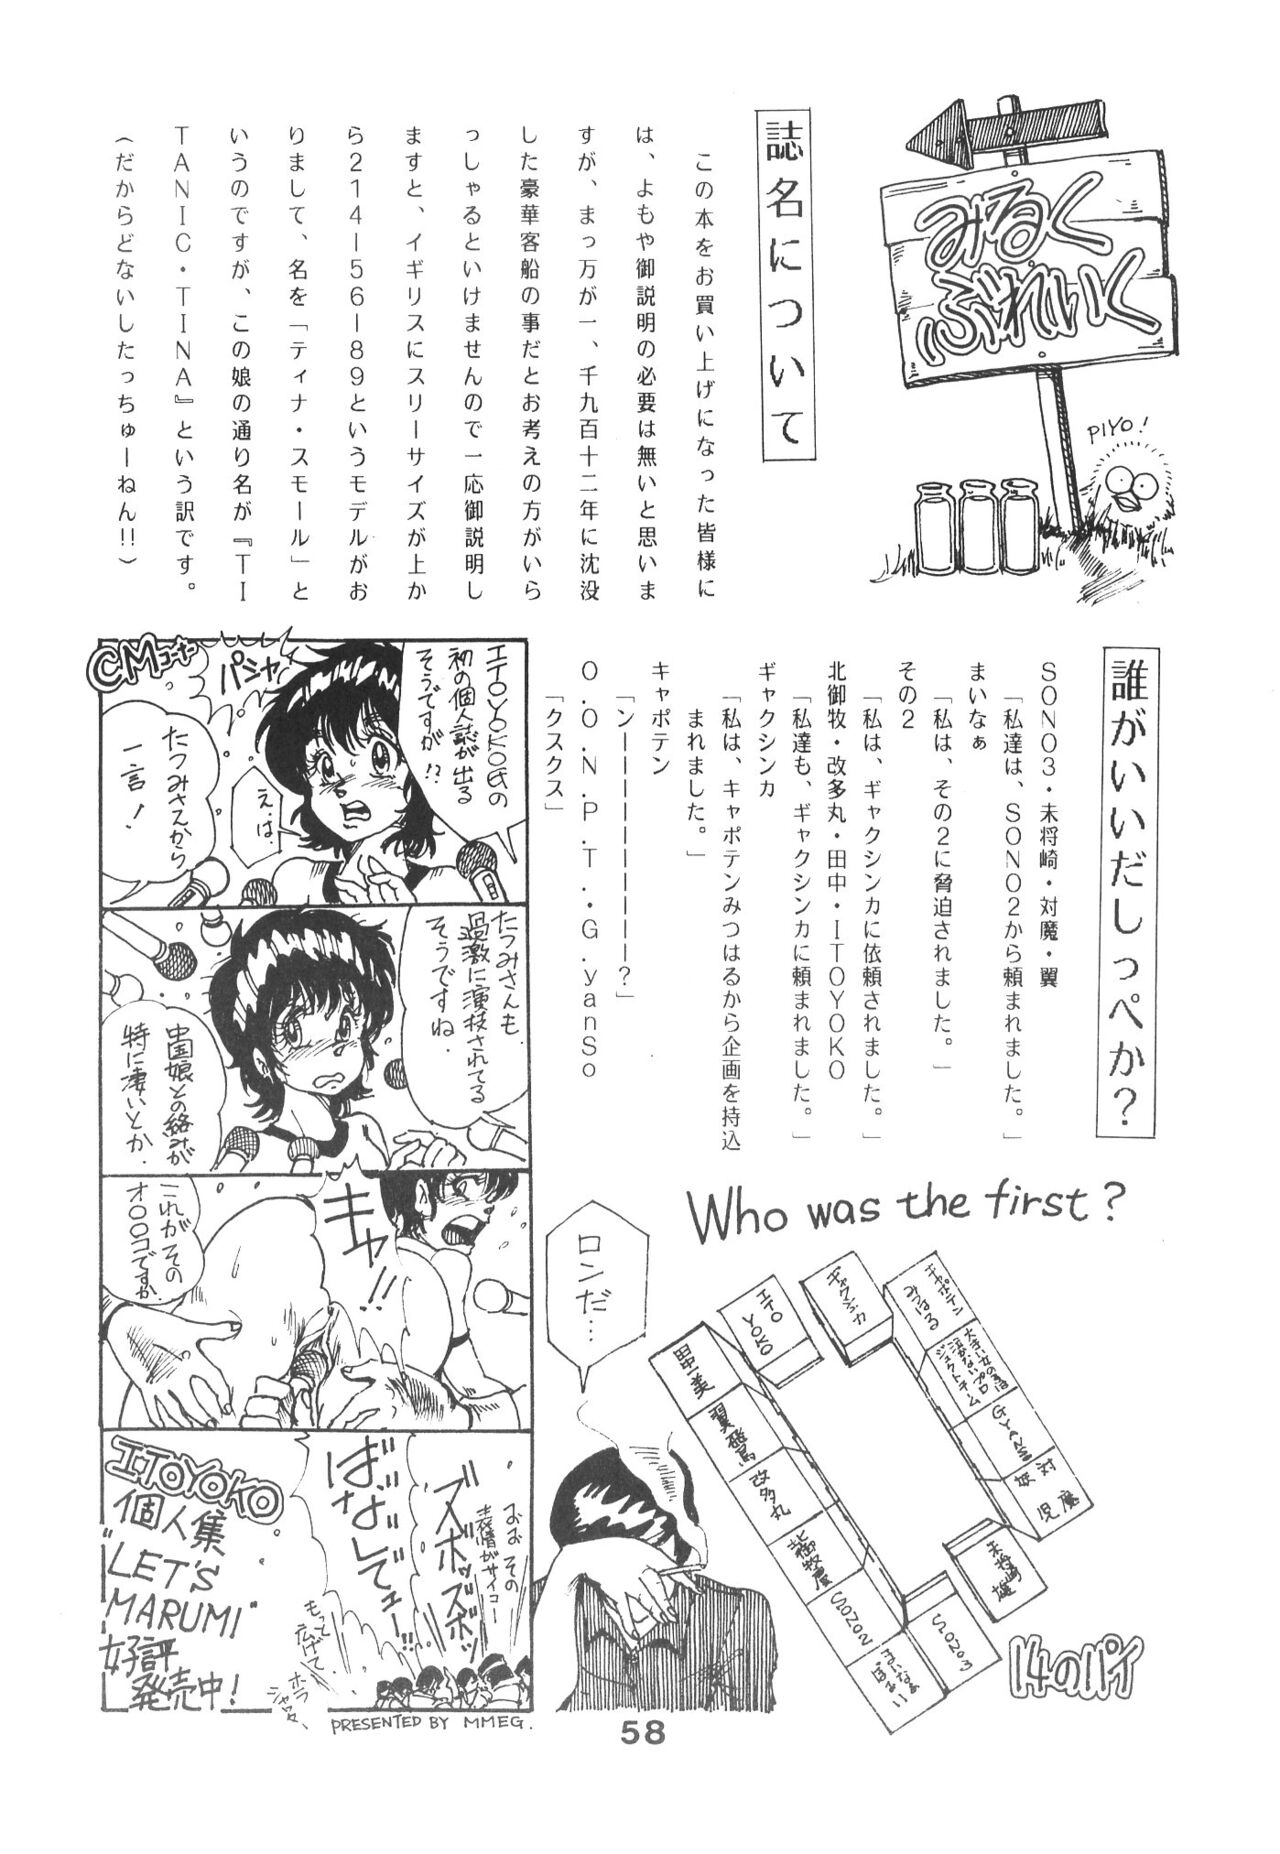 みるく
ぶれいく
PIYO!
誌名について
この本をお買い上げになった皆様に
は、よもや御説明の必要は無いと思いま
すが、まっ万が一、千九百十二年に沈没
した豪華客船の事だとお考えの方がいら
っしゃるといけませんので一応御説明し
ますと、イギリスにスリーサイズが上か
ら214ー56ー89というモデルがお
りまして、名を「ティナ・スモール」と
いうのですが、この娘の通り名が『TI
TANIC・TINA』という訳です。
(だからどないしたっちゅーねん!!)
誰がいいだしっぺか?
SONO3・未将崎・対魔・翼
「私達は、SONO2から頼まれました。」
まいなぁ
「私は、その2に脅迫されました。」
その2
「私は、ギャクシンカに依頼されました。」
北御牧・改多丸・田中・ITOYOKO
「私達も、ギャクシンカに頼まれました。」
ギャクシンカ
「私は、キャポテンみつはるから企画を持込
まれました。」
キャポテン
「ンーーーーーーーー?」
O.O.N.P.T.・G.yanSo
「クスクス」
CMコーナー
パシャ
ITOYOKO氏の
初の個人誌が出る
そうですが!?
え、は、
たつみさんから
一言!
たつみさんも
過激に演技されてる
そうですね.
中国娘との絡みが
特に凄いとか.
キャ!!
これがその
オ○○コですか.
おお その
表情がサイコー
ズボッズボッ
ばなしてェー!!
もって
広げて
ホラ
ITOYOKO
個人集
"LET'S
MARUMI"
好評
発売中!
PRESENTED BY MMEG.
Who was the first?
ロンだ…
キャポテン
みつはる
大きい女の子は
泣かないプロ
ジェクトチーム
対魔
未将崎雄
SONO3
SONO2
北御牧慶
改多丸
田中美
ITO
YOKO
ギャクシンカ
14のパイ
58